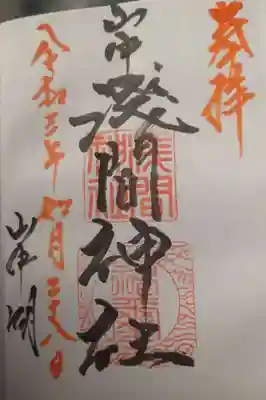 奉拝
山中淺間神社
令和三年如月二十八日
山中湖